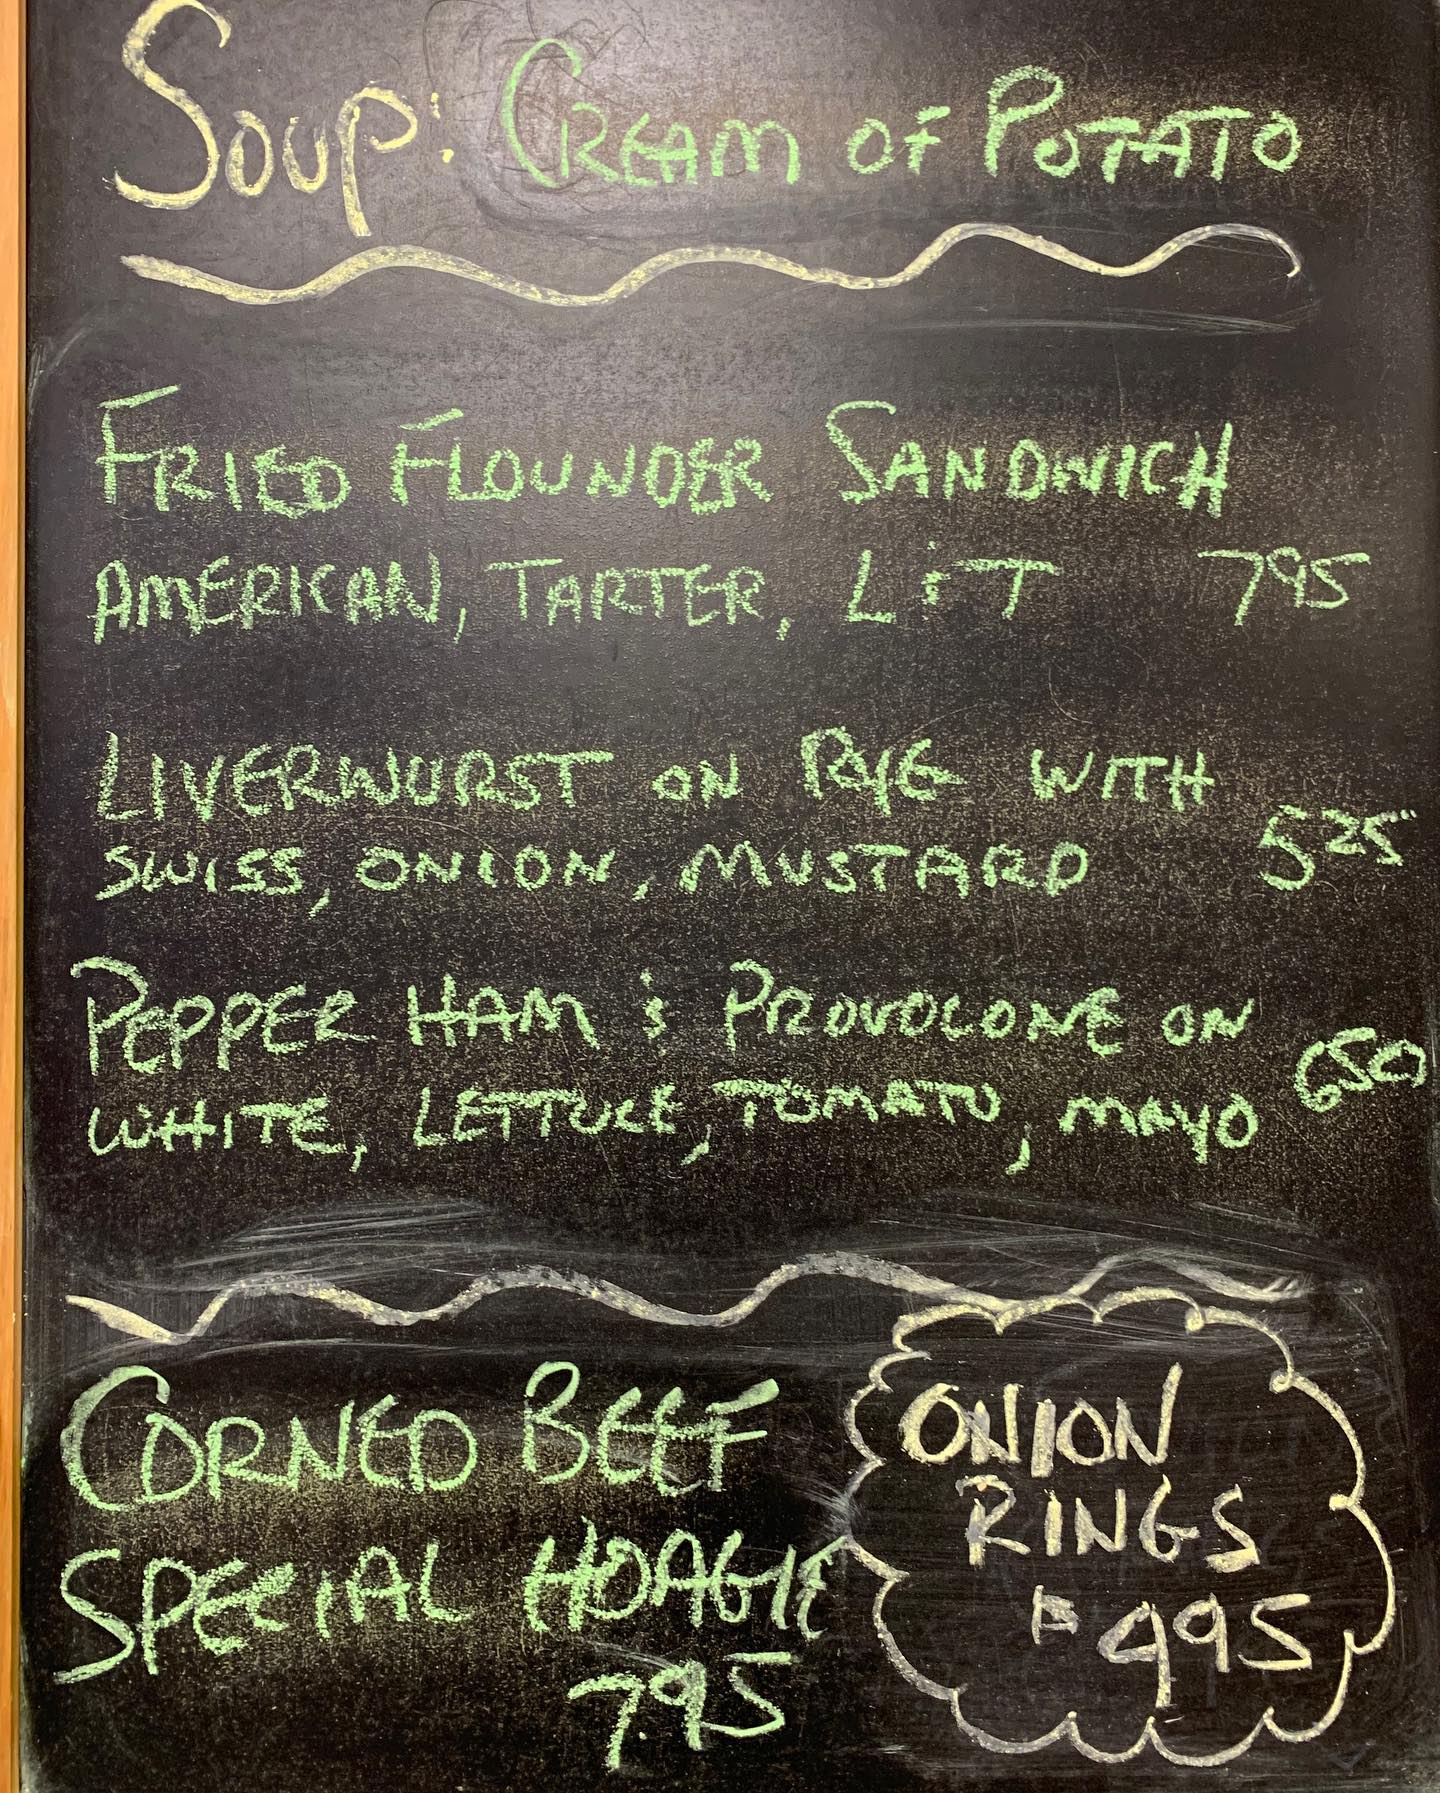 SOUP: CREAM OF POTATO
FRIED FLOUNDER SANDWICH
AMERICAN, TARTER, L & T 795
LIVERWURST ON RYE WITH
SWISS, ONION, MUSTARD 525
PEPPER HAM & PROVOLONE ON
WHITE, LETTUCE, TOMATO, MAYO 650
CORNED BEEF
SPECIAL HOAGIE
7.95
ONION
RINGS
495